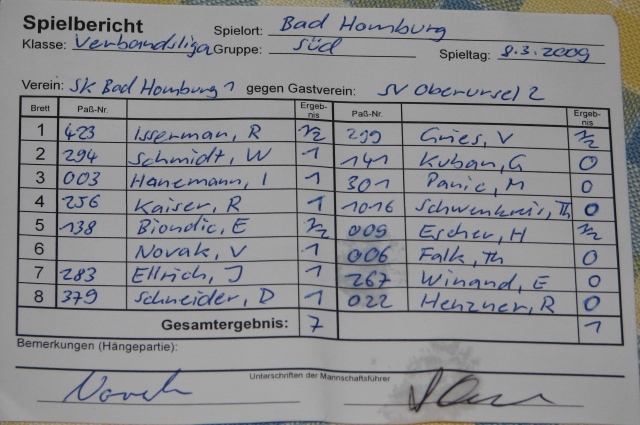 Spielbericht Spielort: Bad Homburg
Klasse: Verbandsliga Gruppe: Süd Spieltag: 8.3.2009
Verein: SK Bad Homburg 1 gegen Gastverein: SV Oberursel 2
Brett Paß-Nr. Ergeb-nis Paß-Nr. Ergeb-nis
1 423 Isserman, R ½ 299 Gries, V ½
2 294 Schmidt, W 1 141 Kuban, G 0
3 003 Hanemann, I 1 301 Panic, M 0
4 256 Kaiser, R 1 1016 Schwenkreis, Th 0
5 138 Biondic, E ½ 009 Escher, H ½
6 Novak, V 1 006 Falk, Th 0
7 283 Ellrich, J 1 267 Winand, E 0
8 379 Schneider, D 1 022 Henzner, R 0
Gesamtergebnis: 7 1
Bemerkungen (Hängepartie):
Unterschriften der Mannschaftsführer
Novak